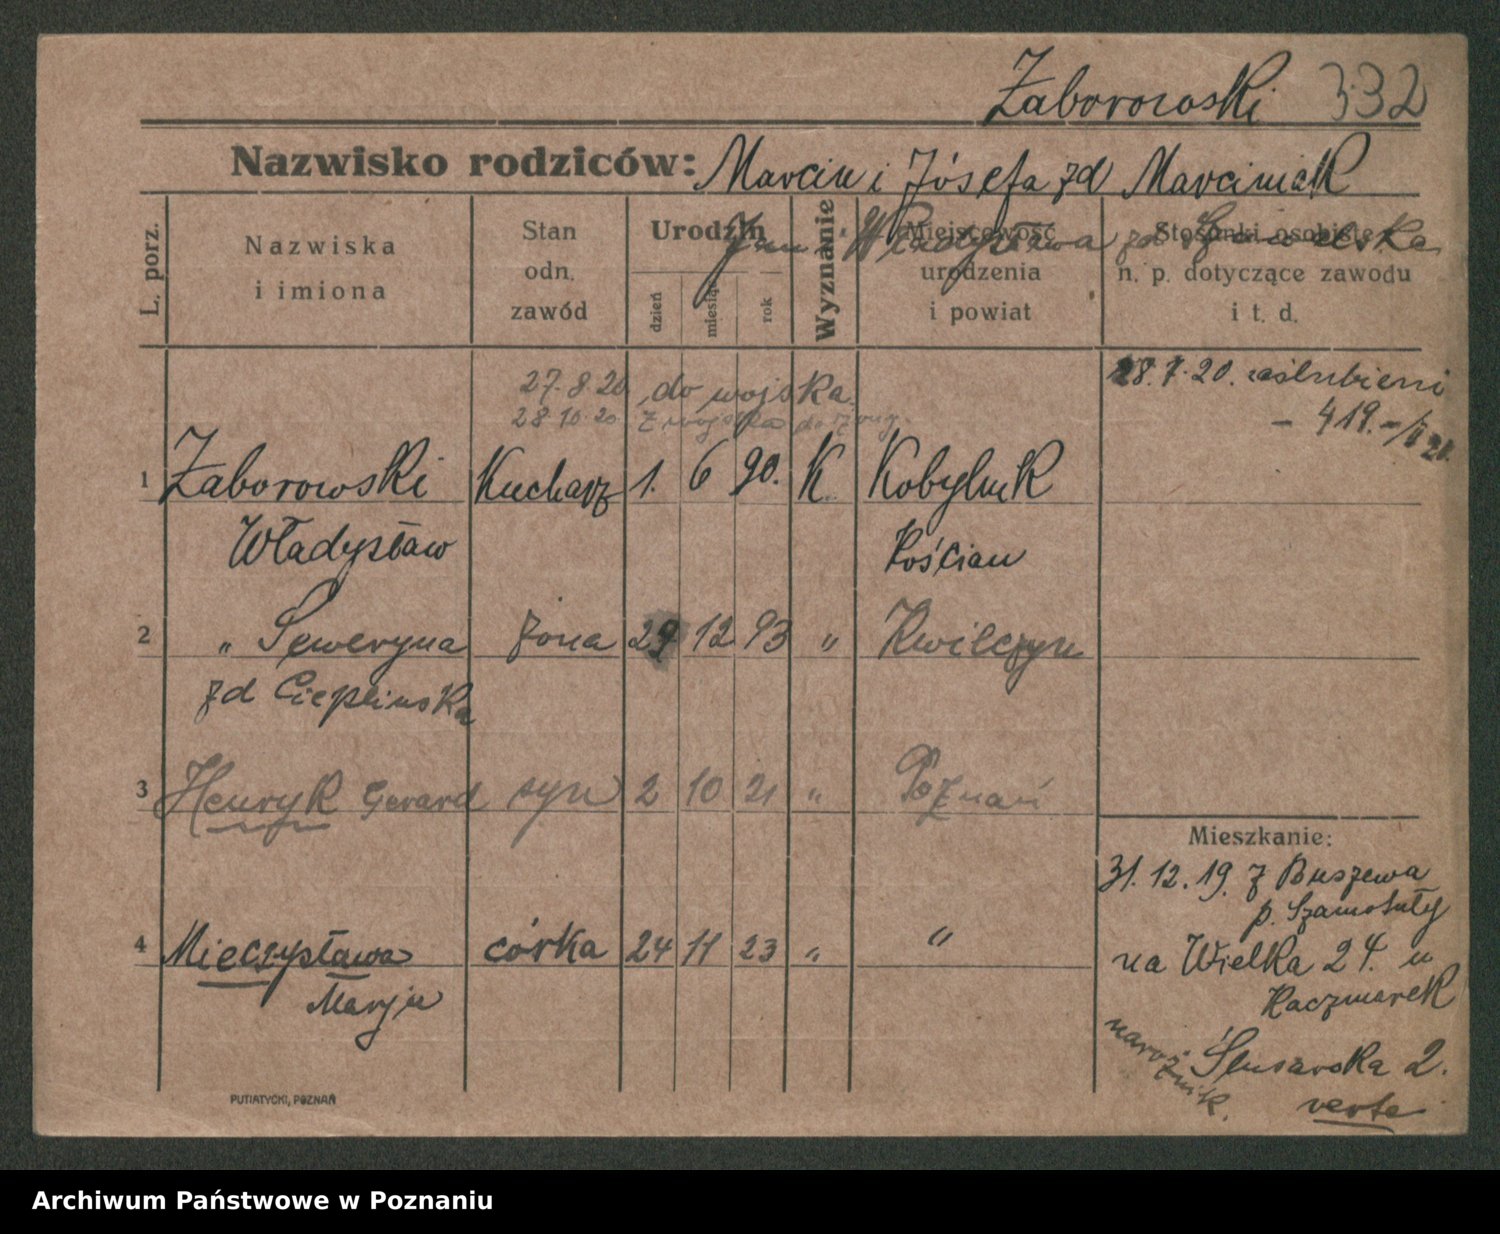 Zaborowski 332
Nazwisko rodziców: Marcin i Józefa zd Marciniak
Jan i Władysława zd
L. porz.
Nazwiska
i imiona
Stan
odn.
zawód
Urodzin
dzień
miesiąc
rok
Wyznanie
Miejscowość
urodzenia
i powiat
Stosunki osobiste
n. p. dotyczące zawodu
i t. d.
27.8.20 do wojska.
28.10.20. z wojska do
28.7.20. zaślubieni
- 419.-/II 20.
1 Zaborowski Kucharz 1. 6 90. K. Kobylnik
Władysław Kościan
2 " Seweryna żona 29 12 93 " Kwilczyn
zd Cieplinska
3 Henryk Gerard syn 2 10 21 " Poznań
4 Mieczysława córka 24 11 23 " "
Marja
Mieszkanie:
31.12.19. z Buszewa
p. Szamotuły
na Wielka 24. u
Kaczmarek
narożnik. Ślusarska 2.
verte
PUTIATYCKI, POZNAŃ
Archiwum Państwowe w Poznaniu